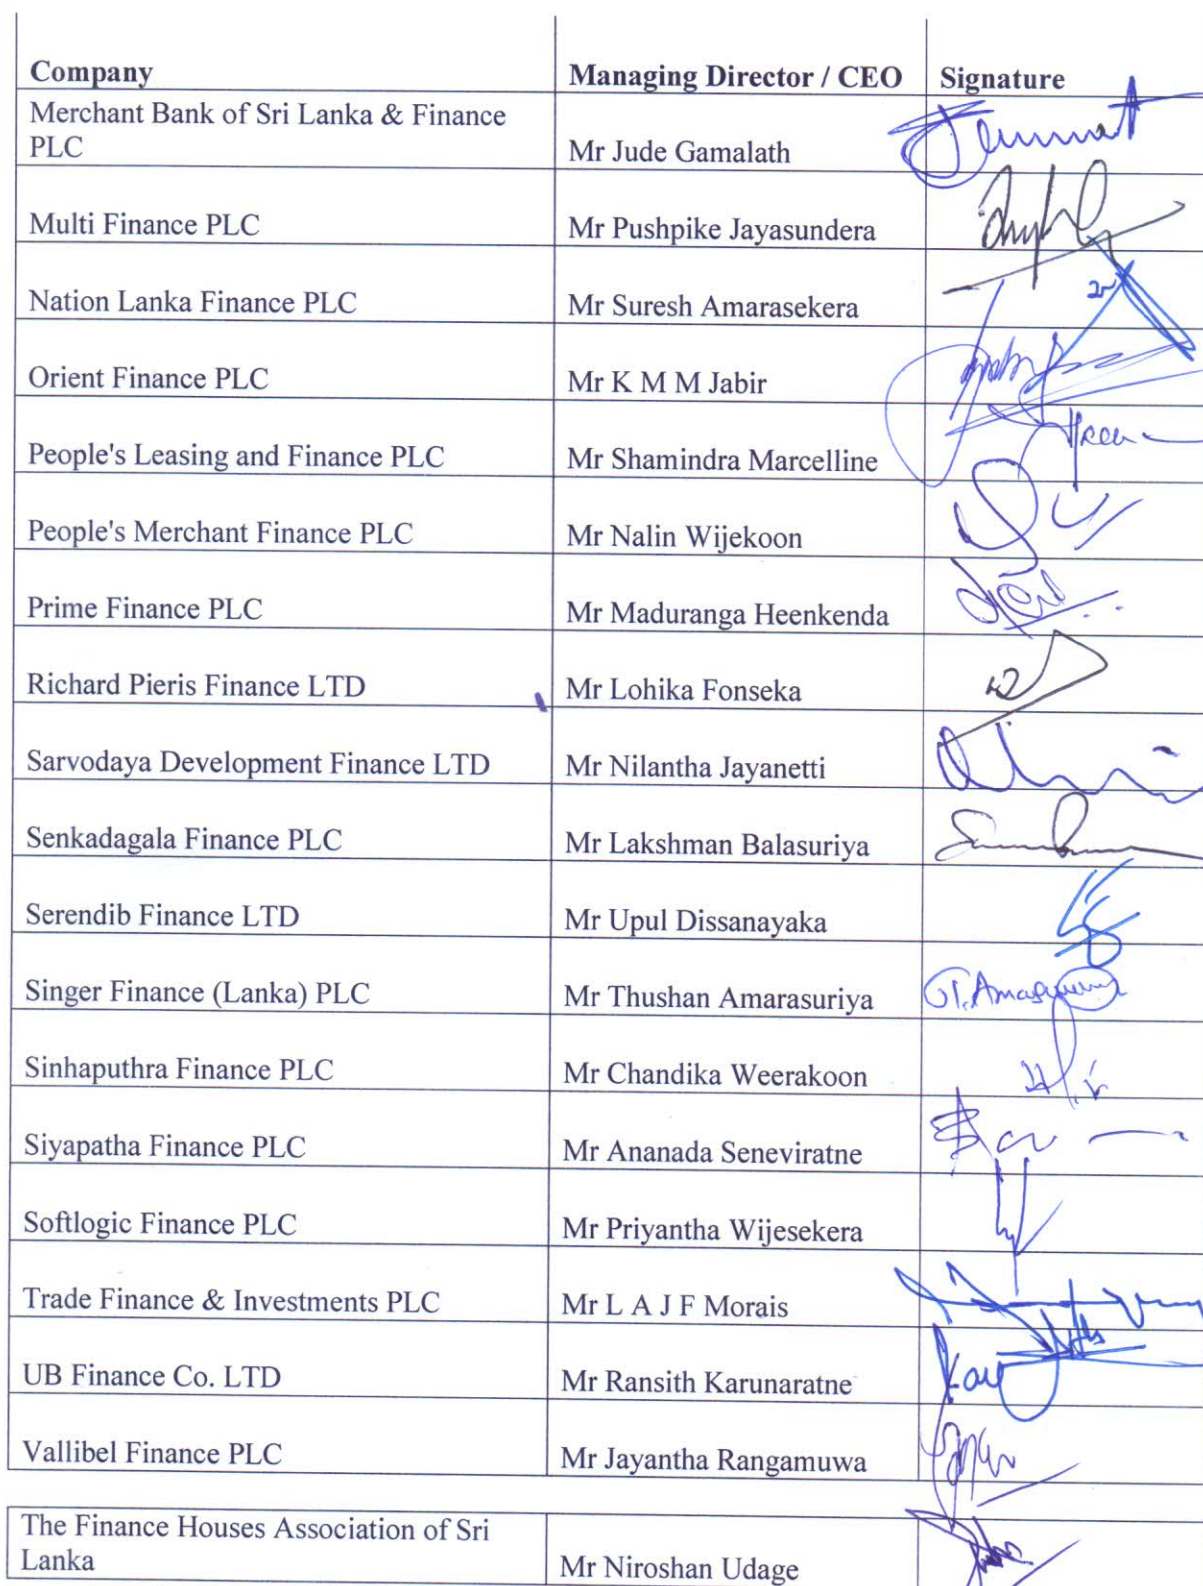 Company Managing Director / CEO Signature
Merchant Bank of Sri Lanka & Finance
PLC Mr Jude Gamalath
Multi Finance PLC Mr Pushpike Jayasundera
Nation Lanka Finance PLC Mr Suresh Amarasekera
Orient Finance PLC Mr K M M Jabir
People's Leasing and Finance PLC Mr Shamindra Marcelline
People's Merchant Finance PLC Mr Nalin Wijekoon
Prime Finance PLC Mr Maduranga Heenkenda
Richard Pieris Finance LTD Mr Lohika Fonseka
Sarvodaya Development Finance LTD Mr Nilantha Jayanetti
Senkadagala Finance PLC Mr Lakshman Balasuriya
Serendib Finance LTD Mr Upul Dissanayaka
Singer Finance (Lanka) PLC Mr Thushan Amarasuriya
Sinhaputhra Finance PLC Mr Chandika Weerakoon
Siyapatha Finance PLC Mr Ananada Seneviratne
Softlogic Finance PLC Mr Priyantha Wijesekera
Trade Finance & Investments PLC Mr L A J F Morais
UB Finance Co. LTD Mr Ransith Karunaratne
Vallibel Finance PLC Mr Jayantha Rangamuwa
The Finance Houses Association of Sri
Lanka Mr Niroshan Udage